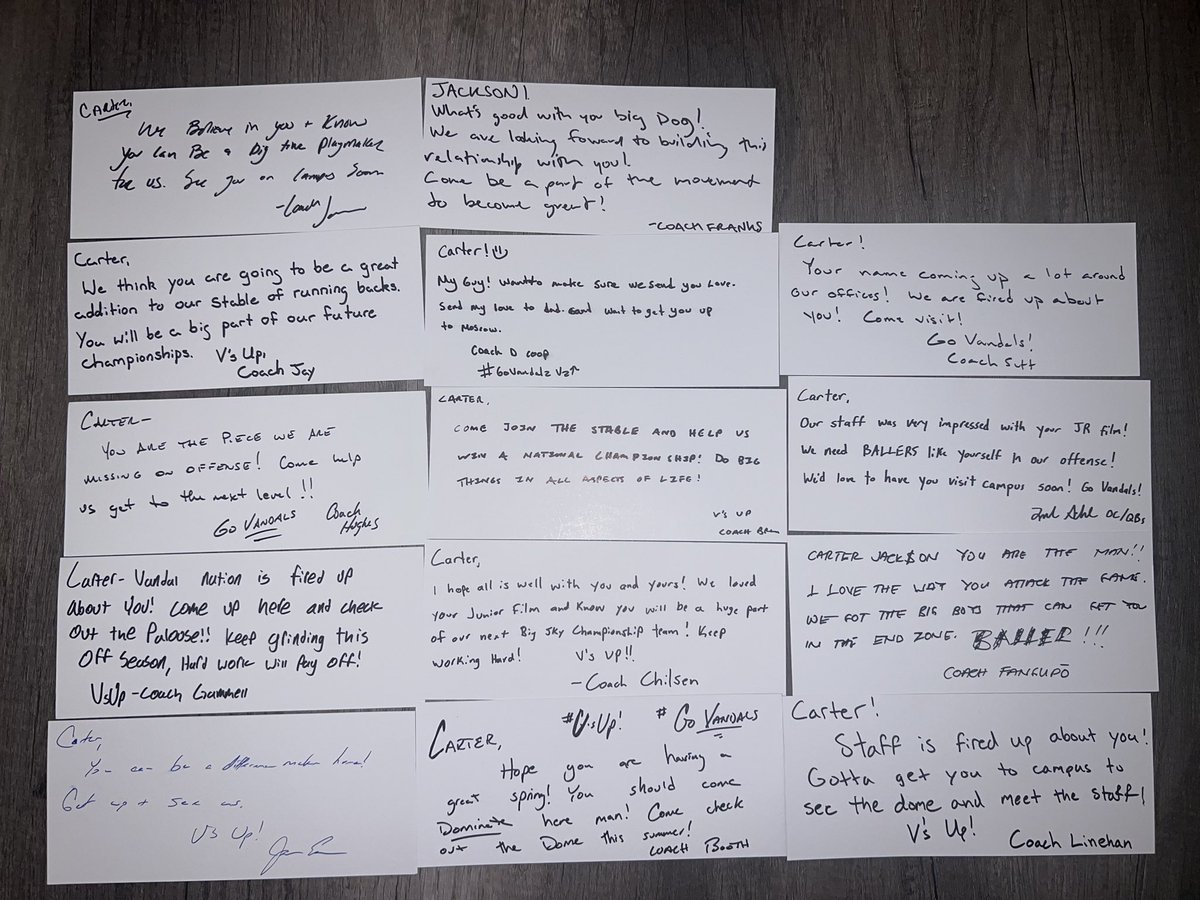 CARTER,
We Believe in you + Know
You can Be a Big time Playmaker
for us. See you on campus Soon
-Coach
JACKSON!
What's good with you big Dog!
We are looking forward to building this
relationship with you!
Come be a part of the movement
to become great!
-COACH FRANKS
Carter,
We think you are going to be a great
addition to our stable of running backs.
You will be a big part of our future
championships.
V's Up,
Coach Jay
Carter!
My Guy! Want to make sure we send you Love.
Send my love to dad. Cant wait to get you up
to Moscow.
Coach D Coop
#GoVandals Vs↑
Carter!
Your name coming up a lot around
our offices! We are fired up about
you! Come visit!
Go Vandals!
Coach Sutt
CARTER-
YOU ARE THE PIECE WE ARE
MISSING ON OFFENSE! Come help
us get to the next level!!
GO VANDALS
Coach
Hughes
CARTER,
COME JOIN THE STABLE AND HELP US
WIN A NATIONAL CHAMPIONSHIP! DO BIG
THINGS IN ALL ASPECTS OF LIFE!
V's UP
COACH
Carter,
Our staff was very impressed with your JR film!
We need BALLERS like yourself in our offense!
We'd love to have you visit campus soon! Go Vandals!
OC/QBs
Carter- Vandal nation is fired up
About You! Come up here and check
Out the Palouse!! Keep grinding this
Off Season, Hard work will Pay Off!
VsUp -Coach Gammell
Carter,
I hope all is well with you and yours! We loved
your Junior Film and Know you will be a huge part
of our next Big Sky Championship team! Keep
working Hard!
V's UP!!
-Coach Chilsen
CARTER JACK$ON YOU ARE THE MAN!!
I LOVE THE WAY YOU ATTACK THE GAME.
WE GOT THE BIG BOYS THAT CAN GET YOU
IN THE END ZONE. BALLER!!!
COACH FANGUPŌ
Carter,
You can be a difference maker here!
Get up + see us.
V's Up!
#V'sUp! #Go VANDALS
CARTER,
Hope you are having a
great spring! You should come
Dominate here man! Come check
out the Dome this summer!
COACH BOOTH
Carter!
Staff is fired up about you!
Gotta get you to campus to
see the dome and meet the staff!
V's Up!
Coach Linehan